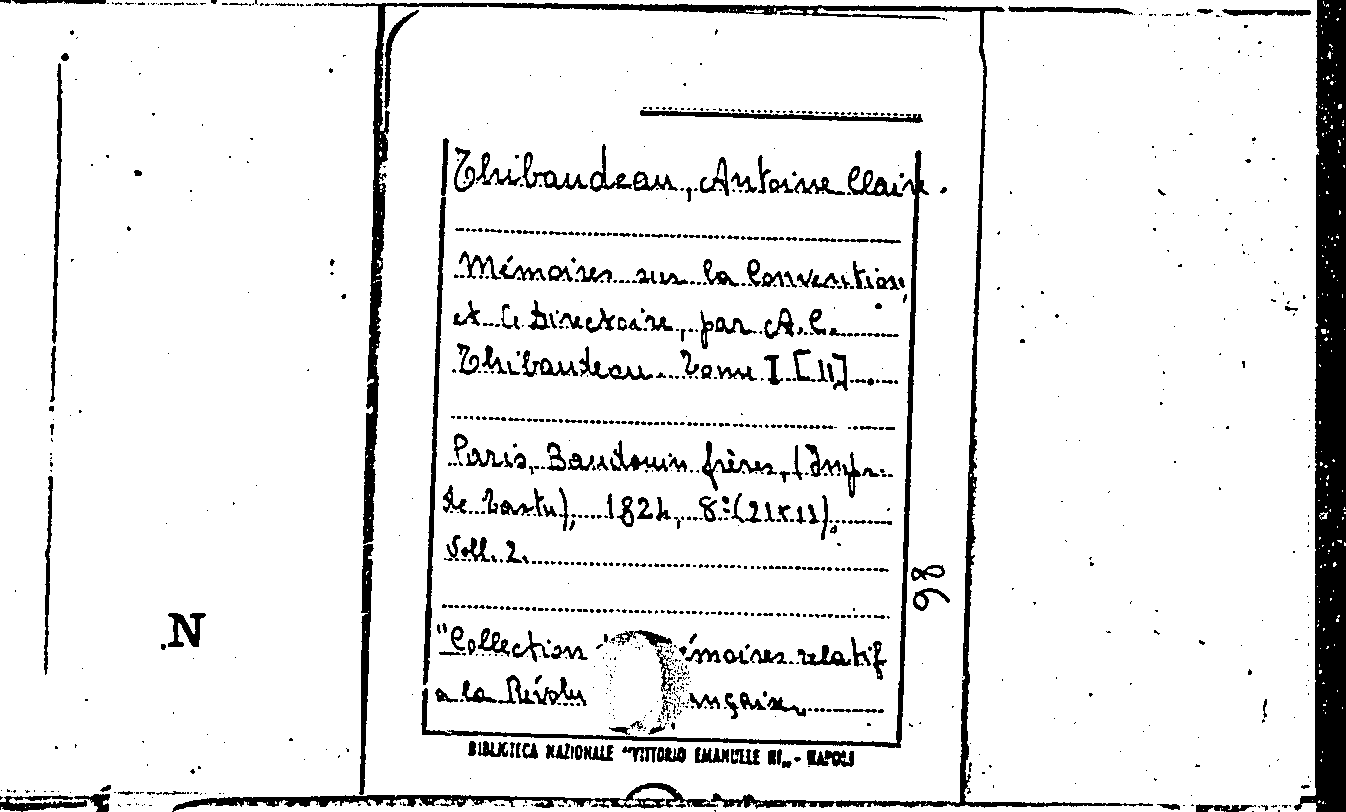 Thibaudeau, Antoine Clair.
Mémoires sur la Convention,
et le Directoire, par A. C.
Thibaudeau. Tome I [II].
Paris, Baudouin frères, (Impr.
de Tastu), 1824, 8º (21x11).
Voll. 2.
98
"Collection émoires relatif
a la Révolu ançaise„
BIBLIOTECA NAZIONALE "VITTORIO EMANUELE III„ - NAPOLI
.N